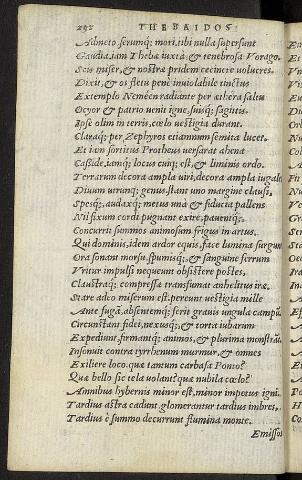 292 THEBAIDOS
Admeto serumq; mori, tibi nulla supersunt
Gaudia, iam Thebæ iuxta & tenebrosa Vorago.
Scis miser, & nostræ pridem cecinere volucres.
Dixit, & os fletu penè inuiolabile tinctus
Extemplo Nemeen radiante per æthera saltu
Ocyor & patrio uenit igne, suisq; sagittis.
Ipse olim in terris, cœlo uestigia durant.
Claraq; per Zephyros etiamnum semita lucet.
Et iam sortitus Protheus versarat ahena
Casside, iamq; locus cuiq; est, & liminis ordo.
Terrarum decora ampla uiri, decora ampla iugales
Diuum utrunq; genus stant uno margine clausi,
Spesq;, audaxq; metus una & fiducia pallens
Nil fixum cordi pugnant exire, pauentq;.
Concurrit summos animosum frigus in artus.
Qui dominis, idem ardor equis, face lumina surgunt
Ora sonant morsu, spumisq;, & sanguine ferrum
Vritur impulsi nequeunt obsistere postes,
Claustraq; compressæ transfumat anhelitus iræ.
Stare adeo miserum est, pereunt uestigia mille
Ante fugã, absentemq; ferit grauis ungula campũ.
Circunstant fidei, nexusq;, & torta iubarum
Expediunt, firmantq; animos, & plurima monstrãt
Insonuit contra tyrrhenum murmur, & omnes
Exiliere loco. quæ tantum carbasa Ponto?
Quæ bello sic tela volant? quæ nubila cœlo?
Amnibus hybernis minor est, minor impetus igni.
Tardius astra cadunt, glomerantur tardius imbres,
Tardius è summo decurrunt flumina monte.
Emissos